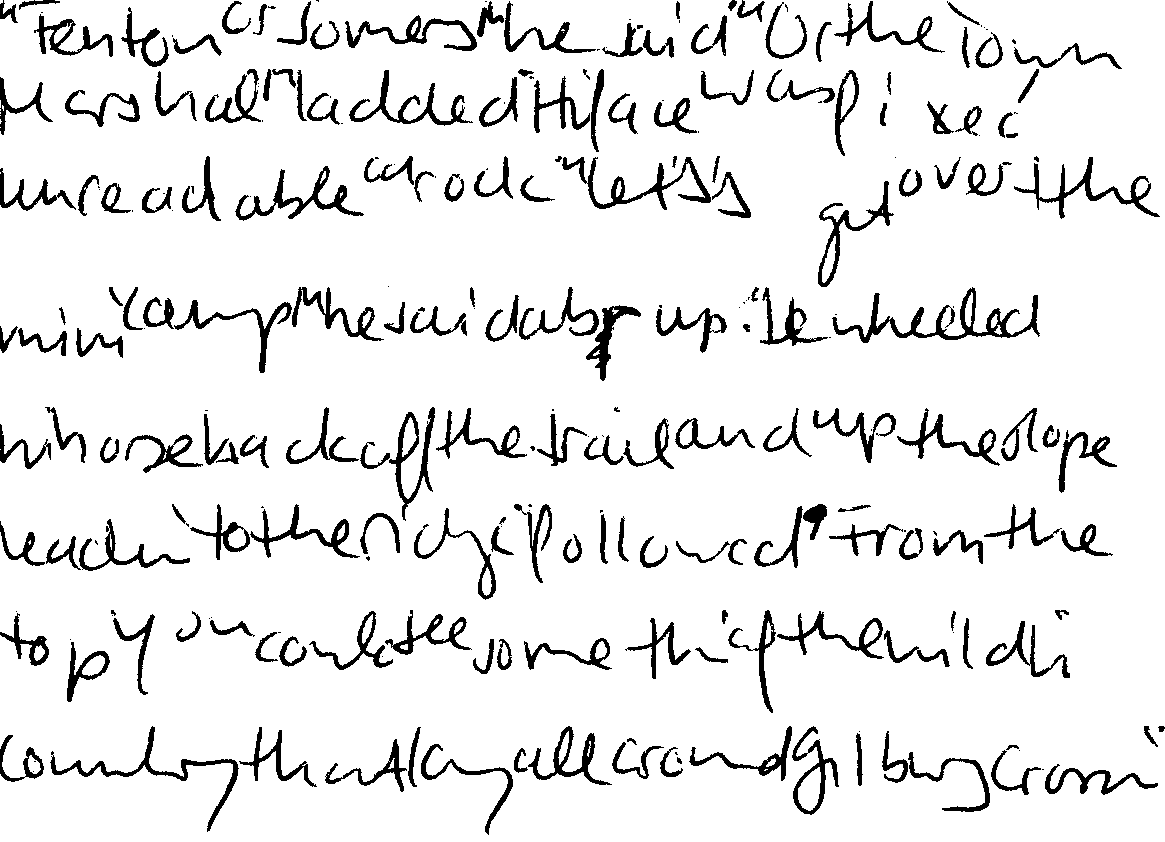 "Fenton or Somers" he said "Or the Town
Marshal" I added His face was fixed
unreadable as rock "Let's get over to the
mining camp" he said abruptly. He wheeled
his horse back off the trail and up the slope
leading to the ridge I followed. From the
top you could see something of the wild hill
country that lay all around Gilburg Crossing